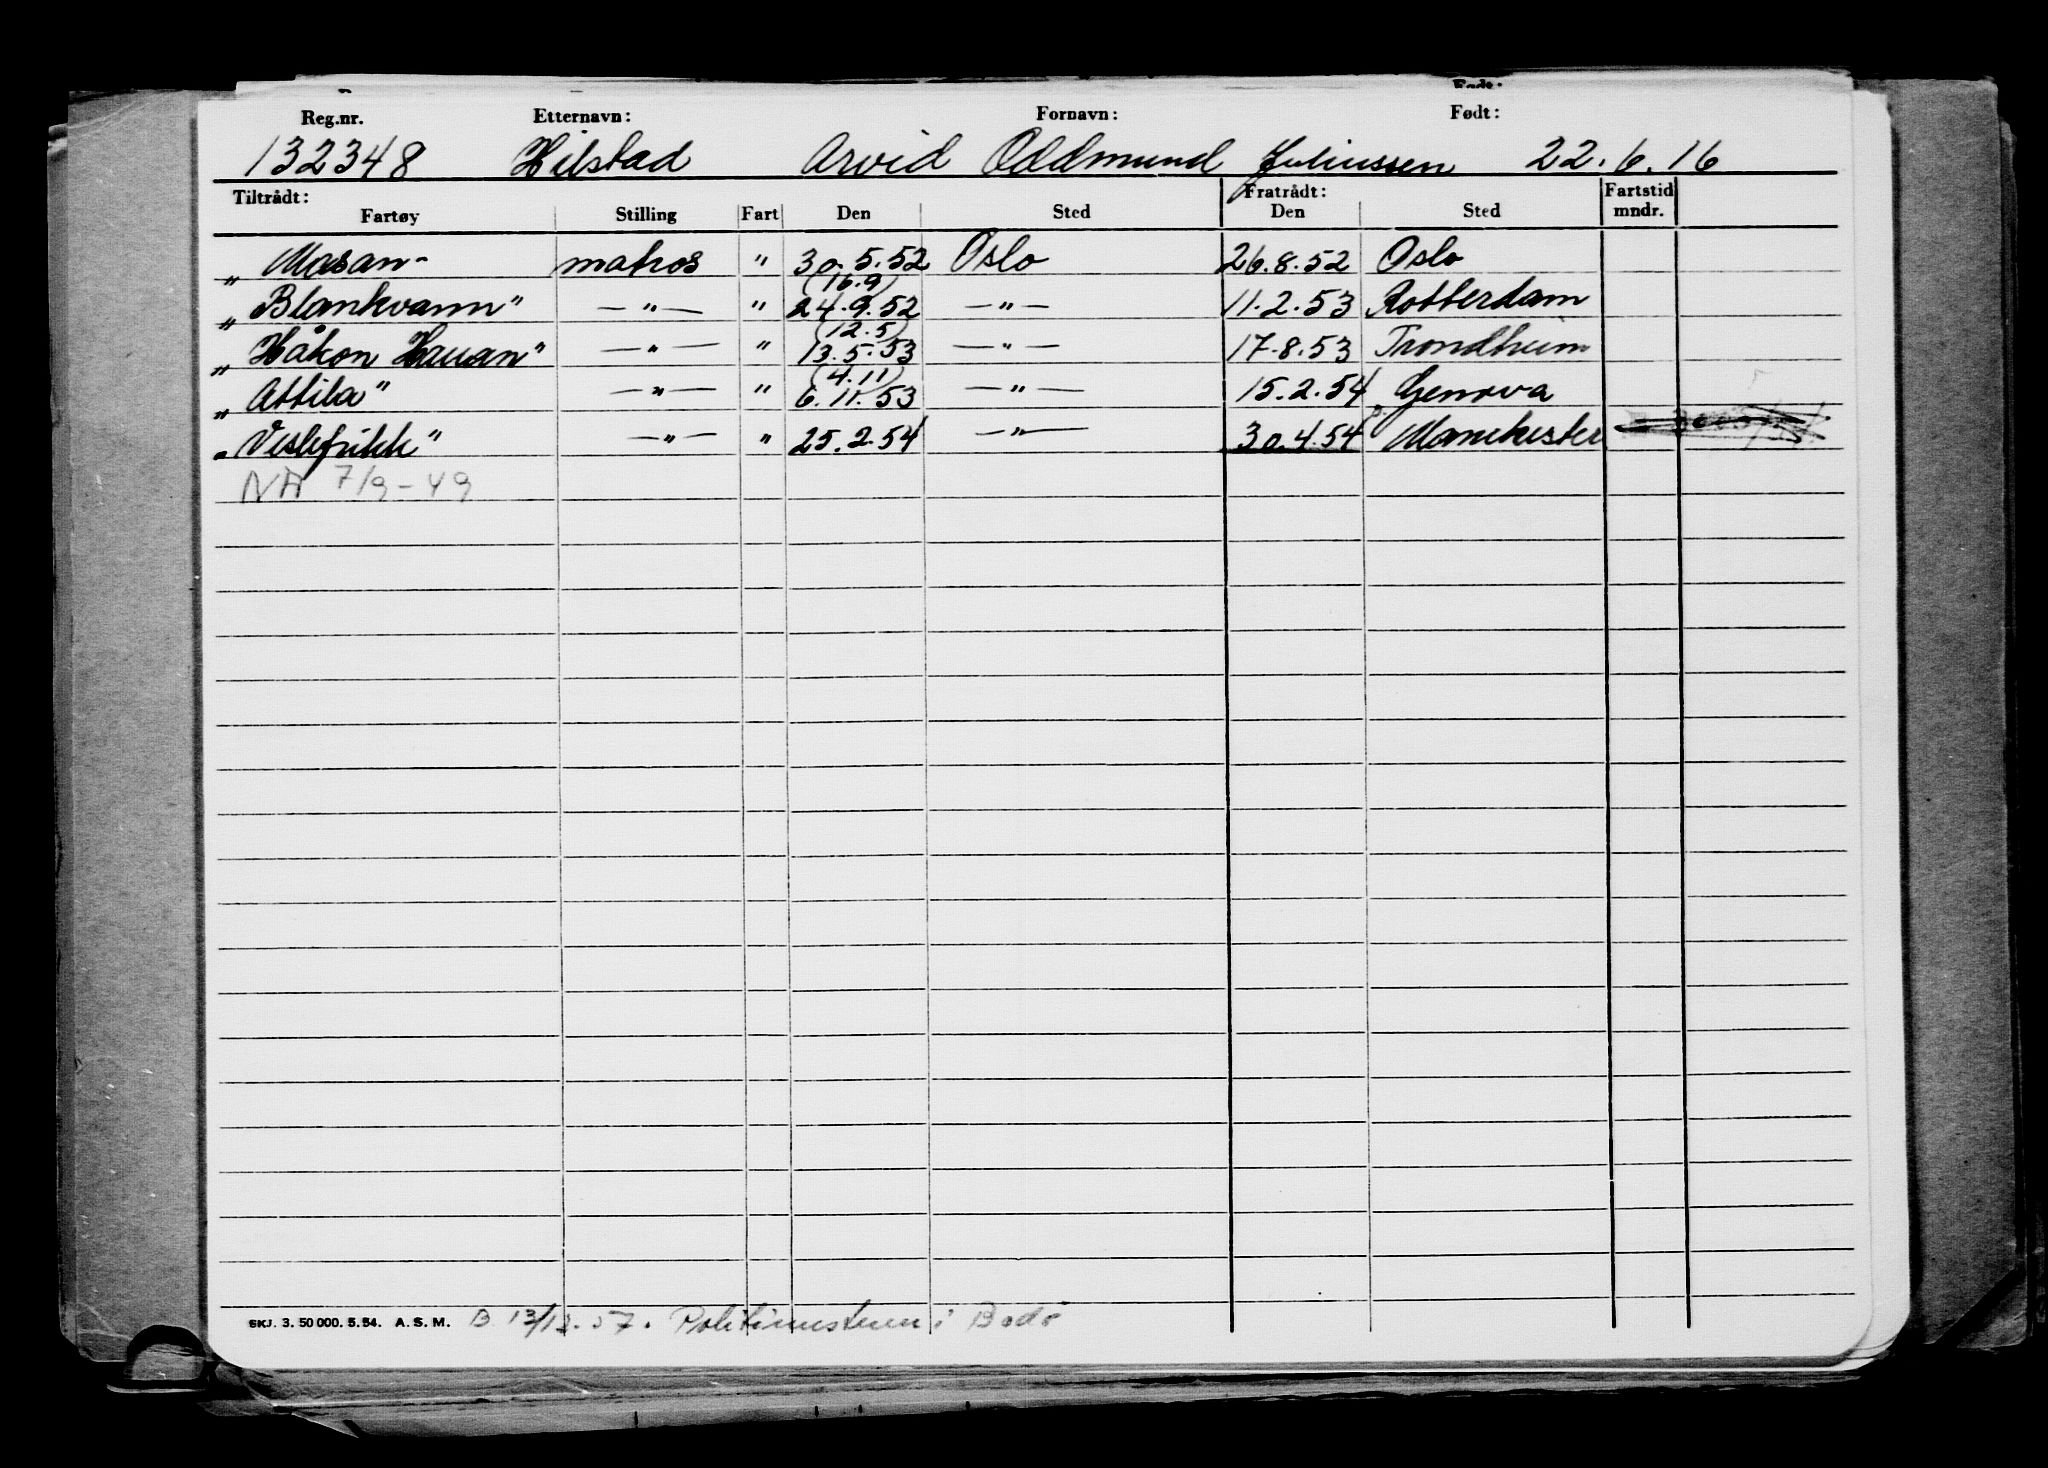 Reg.nr. Etternavn: Fornavn: Født:
132348 Hilstad Arvid Oddmund Juliussen 22.6.16
Tiltrådt: Fratrådt: Fartstid
Fartøy Stilling Fart Den Sted Den Sted mndr.
„Masan- matros " 30.5.52 Oslo 26.8.52 Oslo
(16.9)
„Blankvann" —"— " 24.9.52 —"— 11.2.53 Rotterdam
(12.5)
„Håkon Hauan" —"— " 13.5.53 —"— 17.8.53 Trondheim
(4.11)
„Attila" —"— " 6.11.53 —"— 15.2.54 Genova
„Veslefrikk" —"— " 25.2.54 —"— 30.4.54 Manchester
NA 7/9-49
SKJ. 3. 50 000. 5.54. A. S. M. B 13/12.57. Politimesteren i Bodø